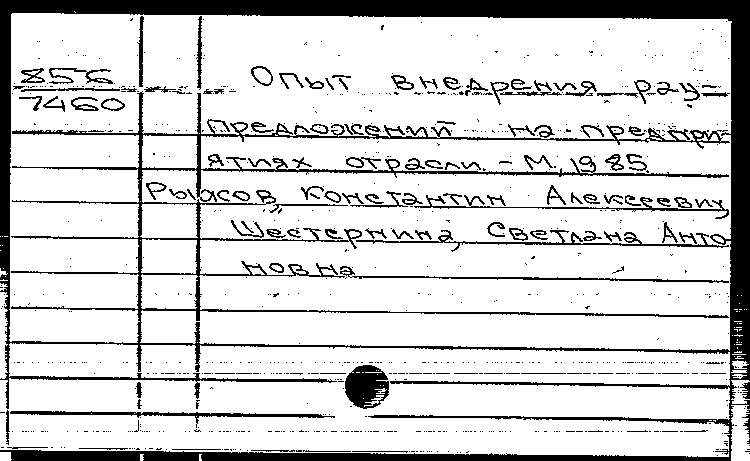 856
7460
Опыт внедрения рац-
предложений на предпри-
ятиях отрасли. - М., 1985
Константин Алексеевич,
Шестернина, Светлана Анто
новна